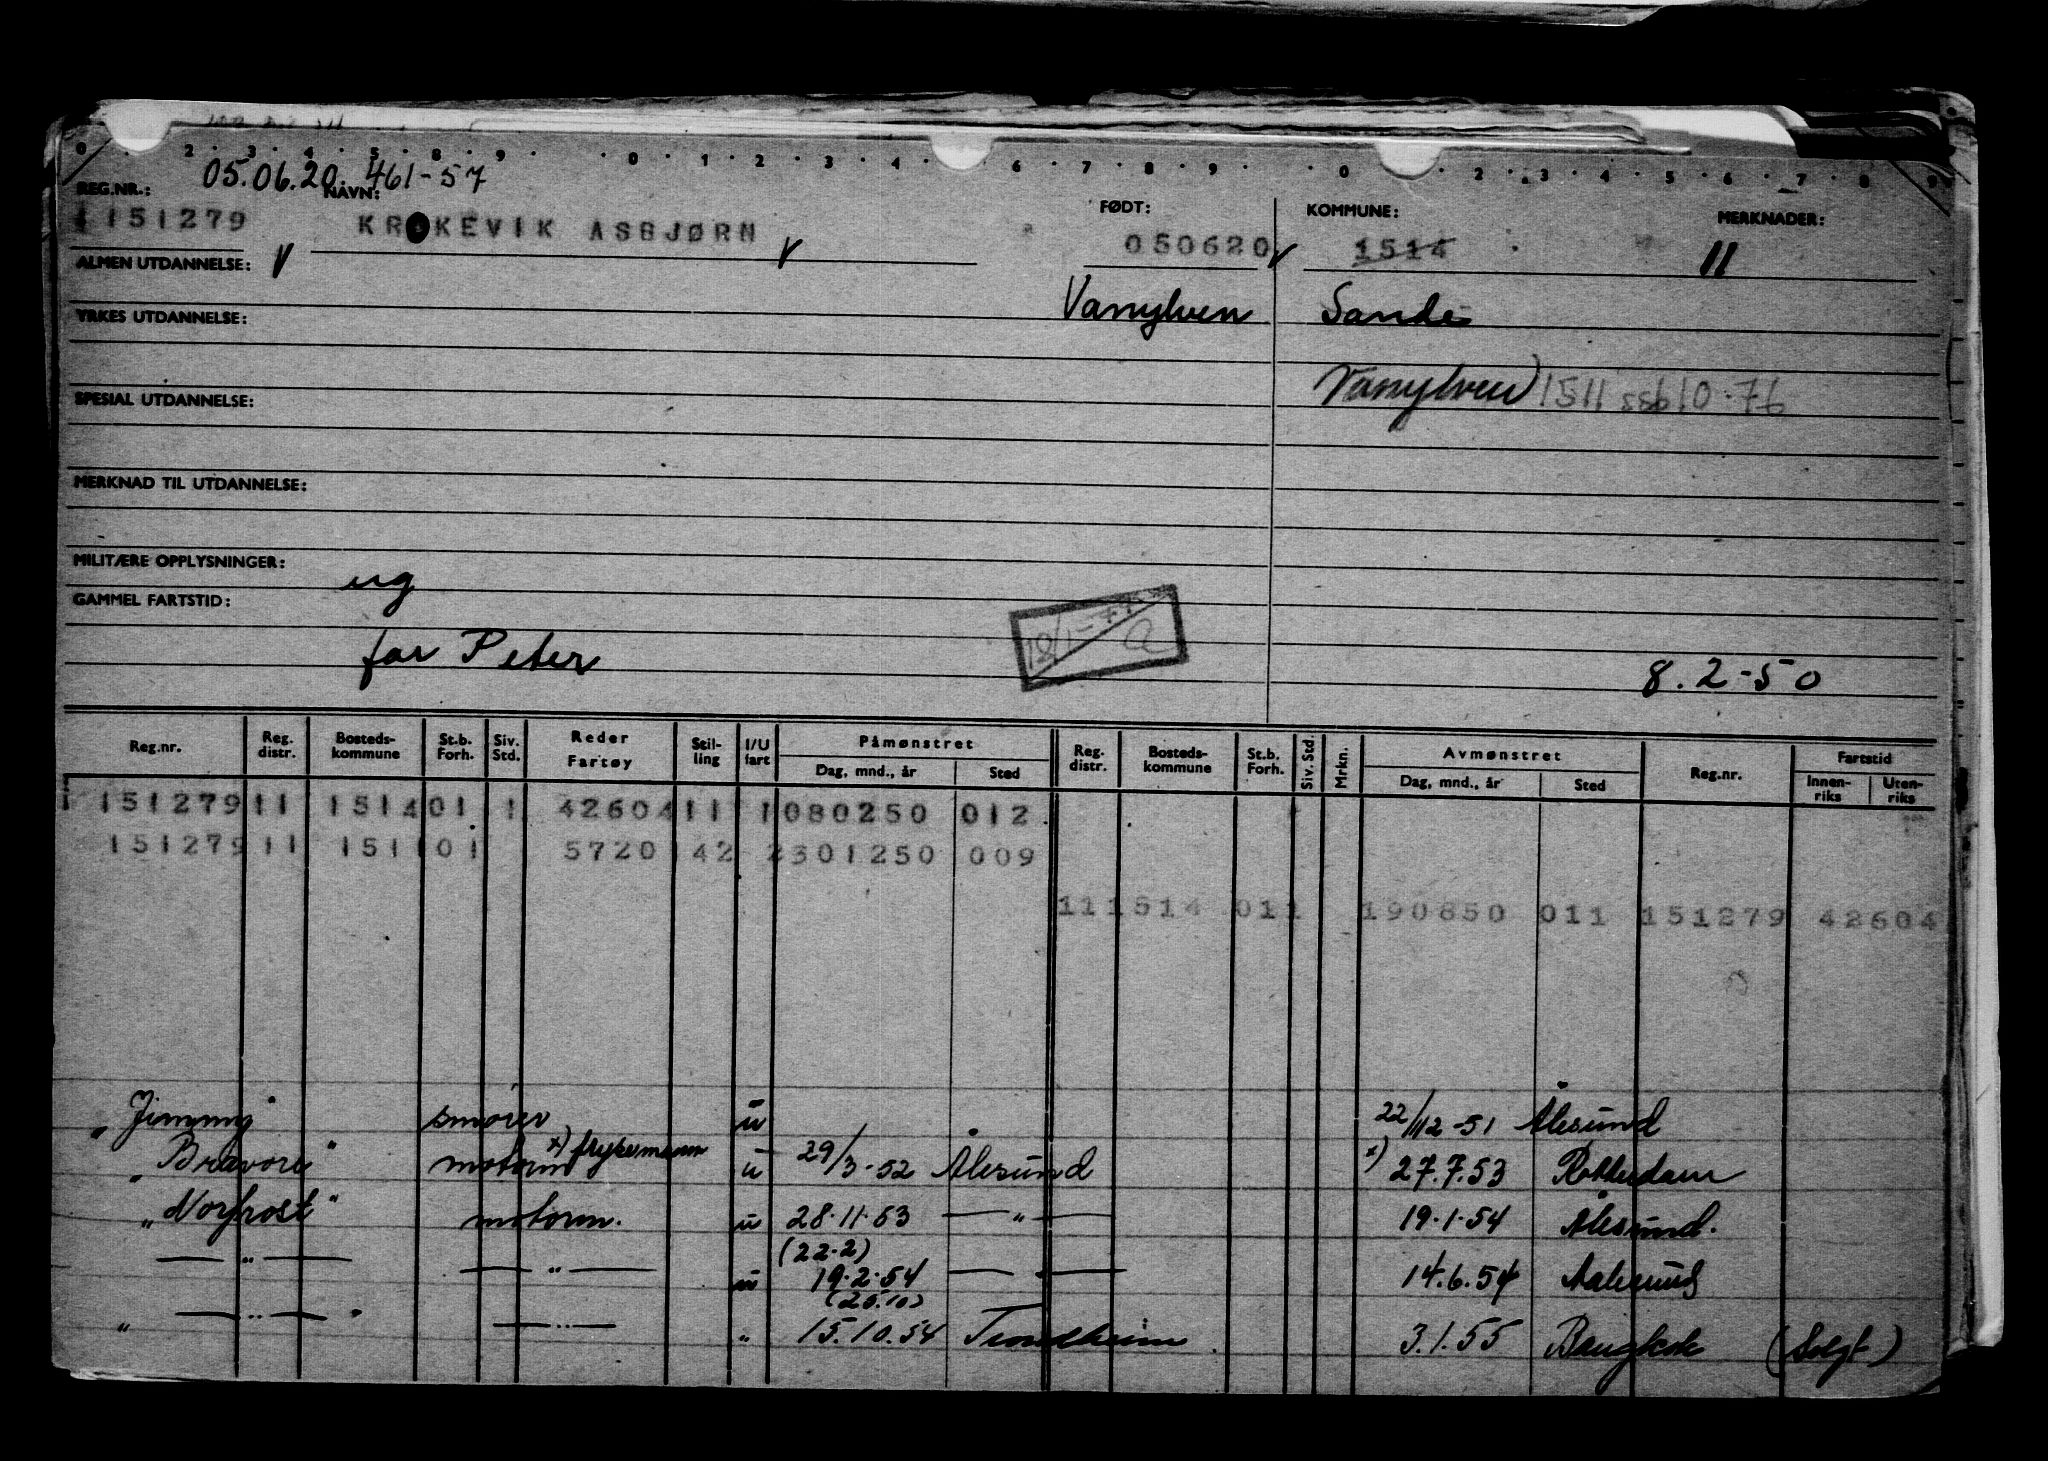 0 . 2 . 3 . 4 . 5 . 8 . 9 . . 0 . 1 . 2 . 3 . 4 . 6 . 7 . 8 . 9 . 0 . 2 . 3 . 4 . 5 . 6 . 7 . 8 . 9
05.06.20. 461-57
REG.NR.: NAVN: FØDT: KOMMUNE: MERKNADER:
1151279 KROKEVIK ASBJØRN 050620 1514 11
ALMEN UTDANNELSE:
Vanylven Sande
YRKES UTDANNELSE:
Vanylven 1511
SPESIAL UTDANNELSE:
MERKNAD TIL UTDANNELSE:
MILITÆRE OPPLYSNINGER: ug
GAMMEL FARTSTID:
far Peter
8.2-50
Reg.nr. Reg. distr. Bosteds-kommune St.b. Forh. Siv. Std. Reder Fartøy Stil-ling I/U fart Påmønstret Dag, mnd., år Sted Reg. distr. Bosteds-kommune St.b. Forh. Siv. Std. Mrkn. Avmønstret Dag, mnd., år Sted Reg.nr. Fartstid Innen-riks Uten-riks
1 151279 11 1514 01 1 42604 11 1 080250 012
151279 11 1511 01 5720 142 2 301250 009
11 1514 011 190850 011 151279 42604
"Jimmy" smører u 22/12-51 Ålesund
"Bravore" motorm x) fryserimann u 29/3-52 Ålesund x) 27.7.53 Rotterdam
"Norfrost" motorm. u 28.11.53 — " — 19.1.54 Ålesund.
— " — — " — u (22.2) 19.2.54 — " — 14.6.54 Aalesund
" — " — " — " — " (25.10) 15.10.54 Trondheim 3.1.55 Bangkok (Solgt)